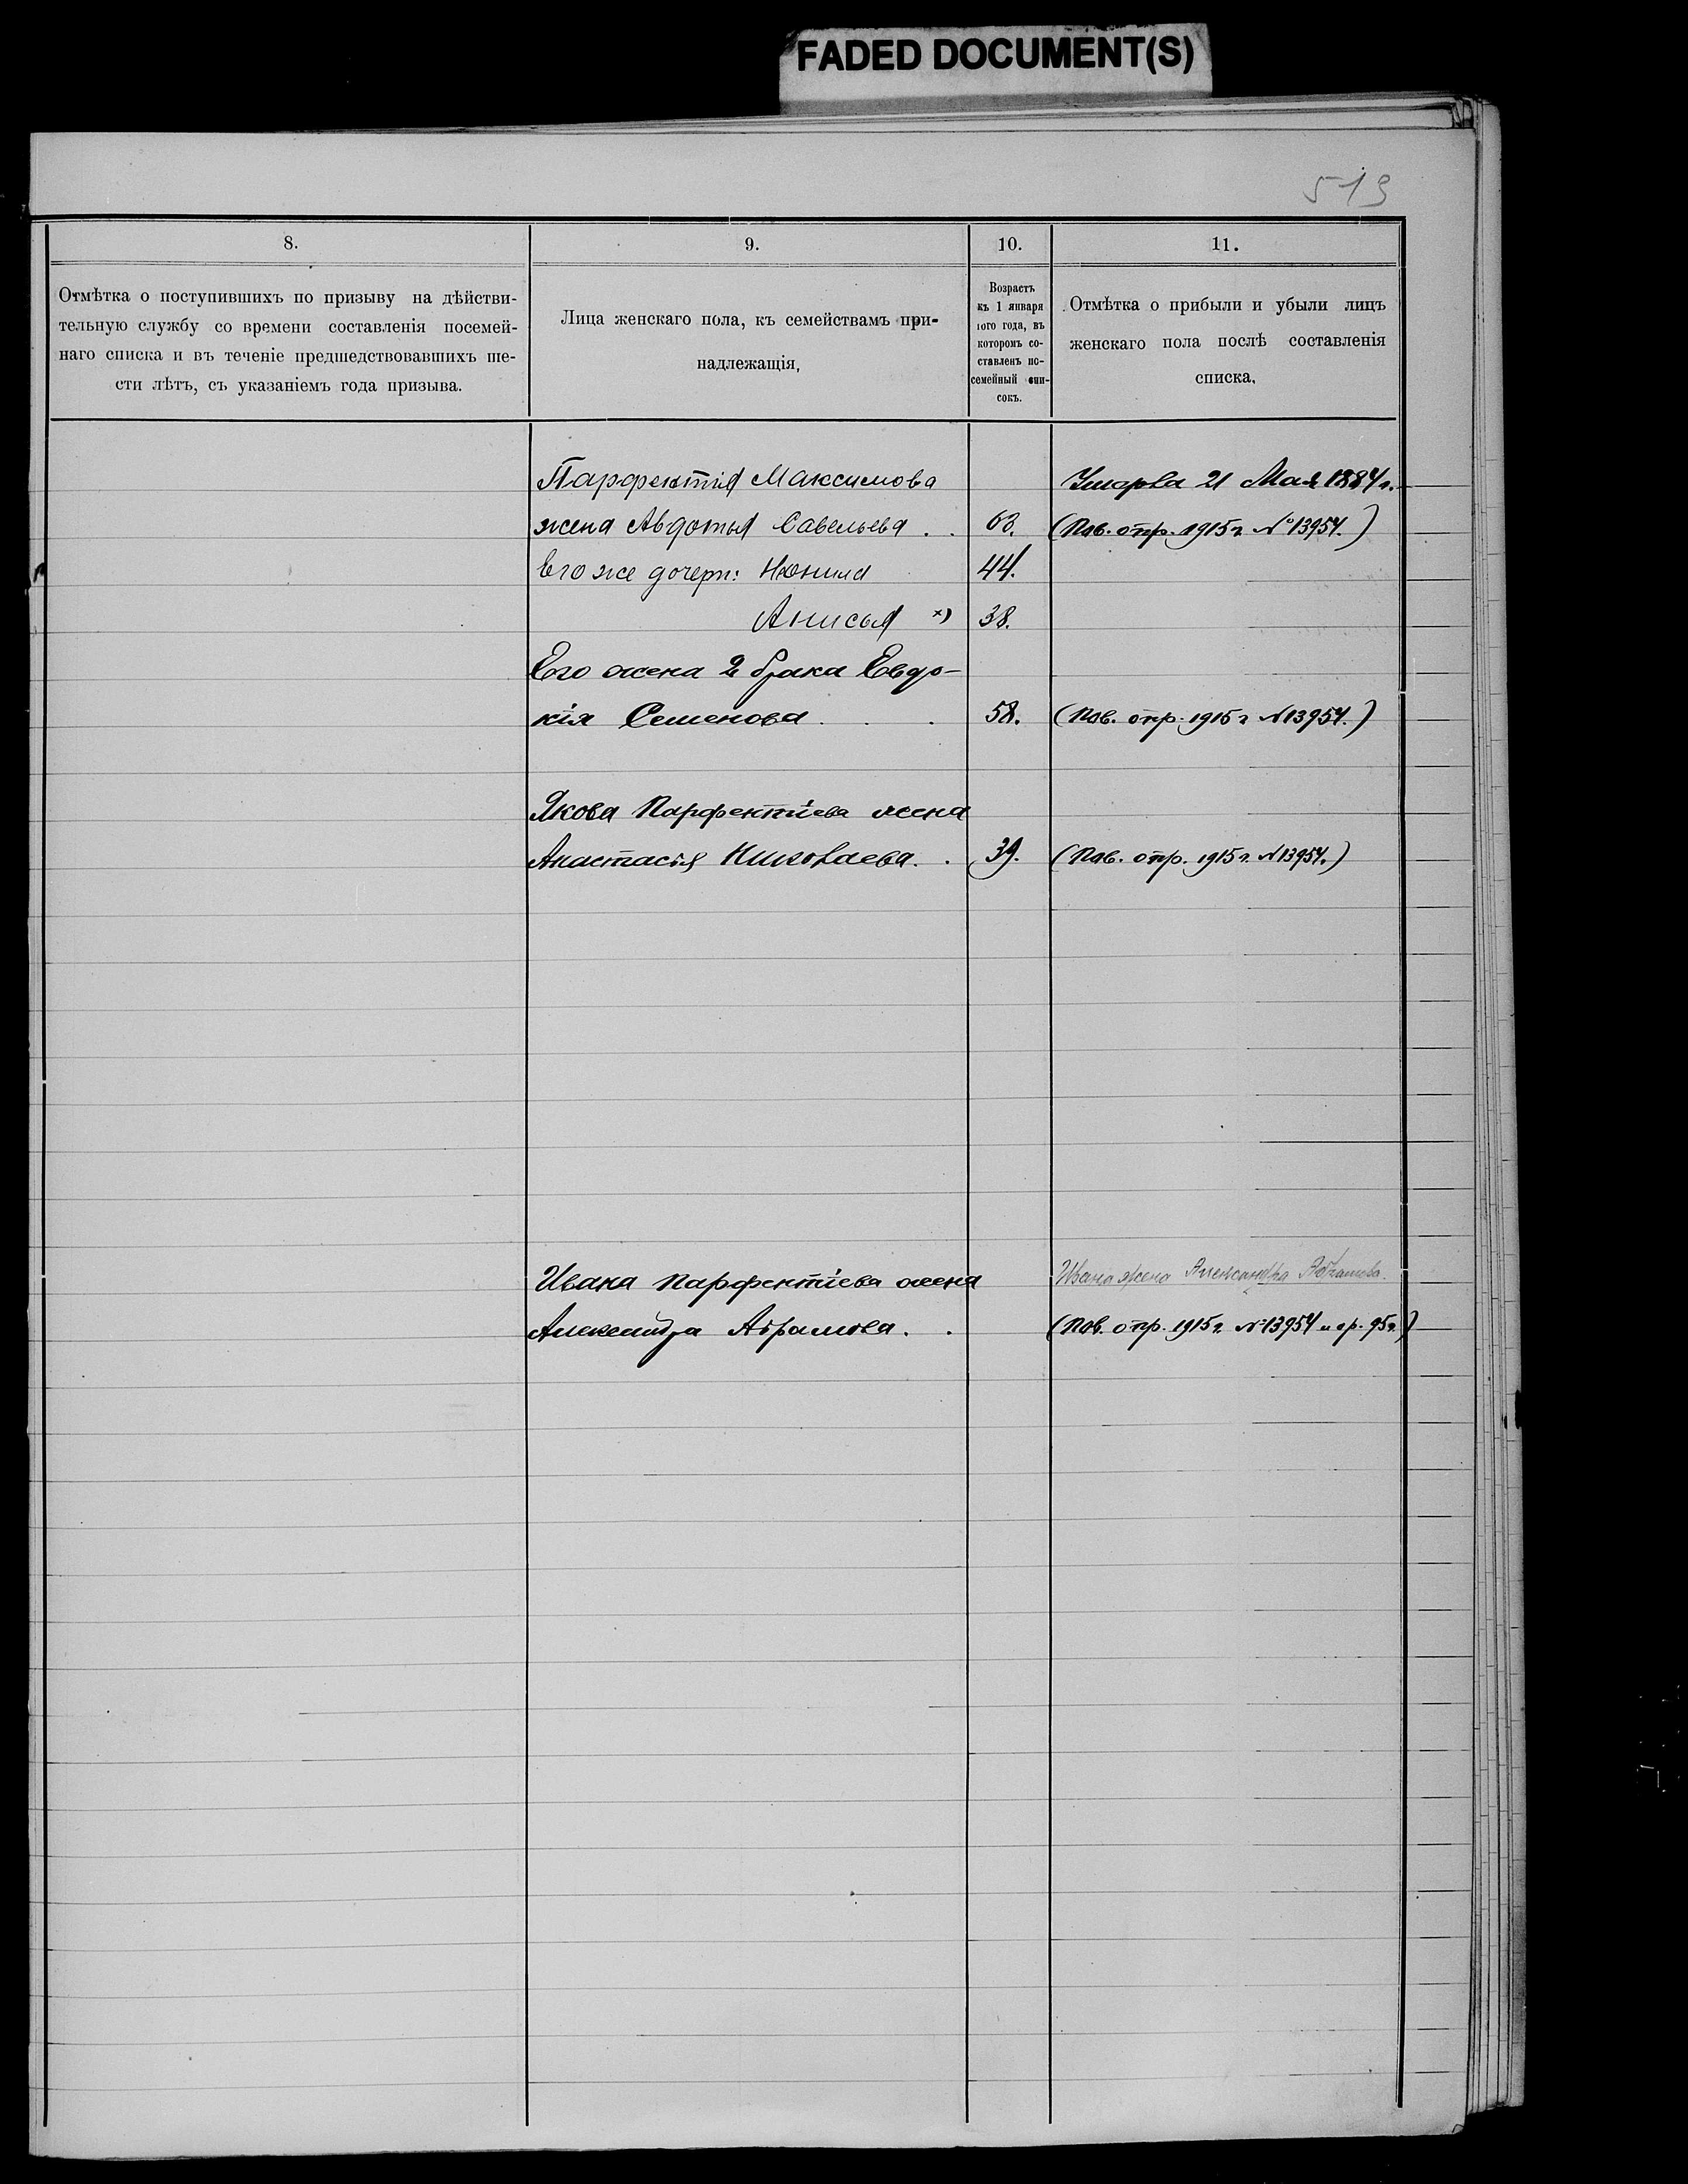 FADED DOCUMENT(S)
519
8.
9.
10.
11.
Отмѣтка о поступившихъ по призыву на дѣйстви-
тельную службу со времени составленія посемей-
наго списка и въ теченіе предшедствовавшихъ ше-
сти лѣтъ, съ указаніемъ года призыва.
Лица женскаго пола, къ семействамъ при-
надлежащія,
Возрастъ
къ 1 января
того года, въ
которомъ со-
ставленъ по-
семейный спи-
сокъ.
Отмѣтка о прибыли и убыли лицъ
женскаго пола послѣ составленія
списка.
Парфентія Максимова
Умерла 21 Мая 1884 г.
жена Авдотья Савельева . . 63. (Пов. опр. 1915 г. № 13954.)
Его же дочери: Нонила 44.
Анисья х) 38.
Его жена 2 брака Евдо-
кія Семенова . . . 58. (Пов. опр. 1915 г. № 13954.)
Якова Парфентіева жена
Анастасія Николаева . . 39. (Пов. опр. 1915 г. № 13954.)
Ивана Парфентіева жена Ивана жена Александра Абрамова.
Александра Абрамова . . (Пов. опр. 1915 г. № 13954 и ор. 95 г.)